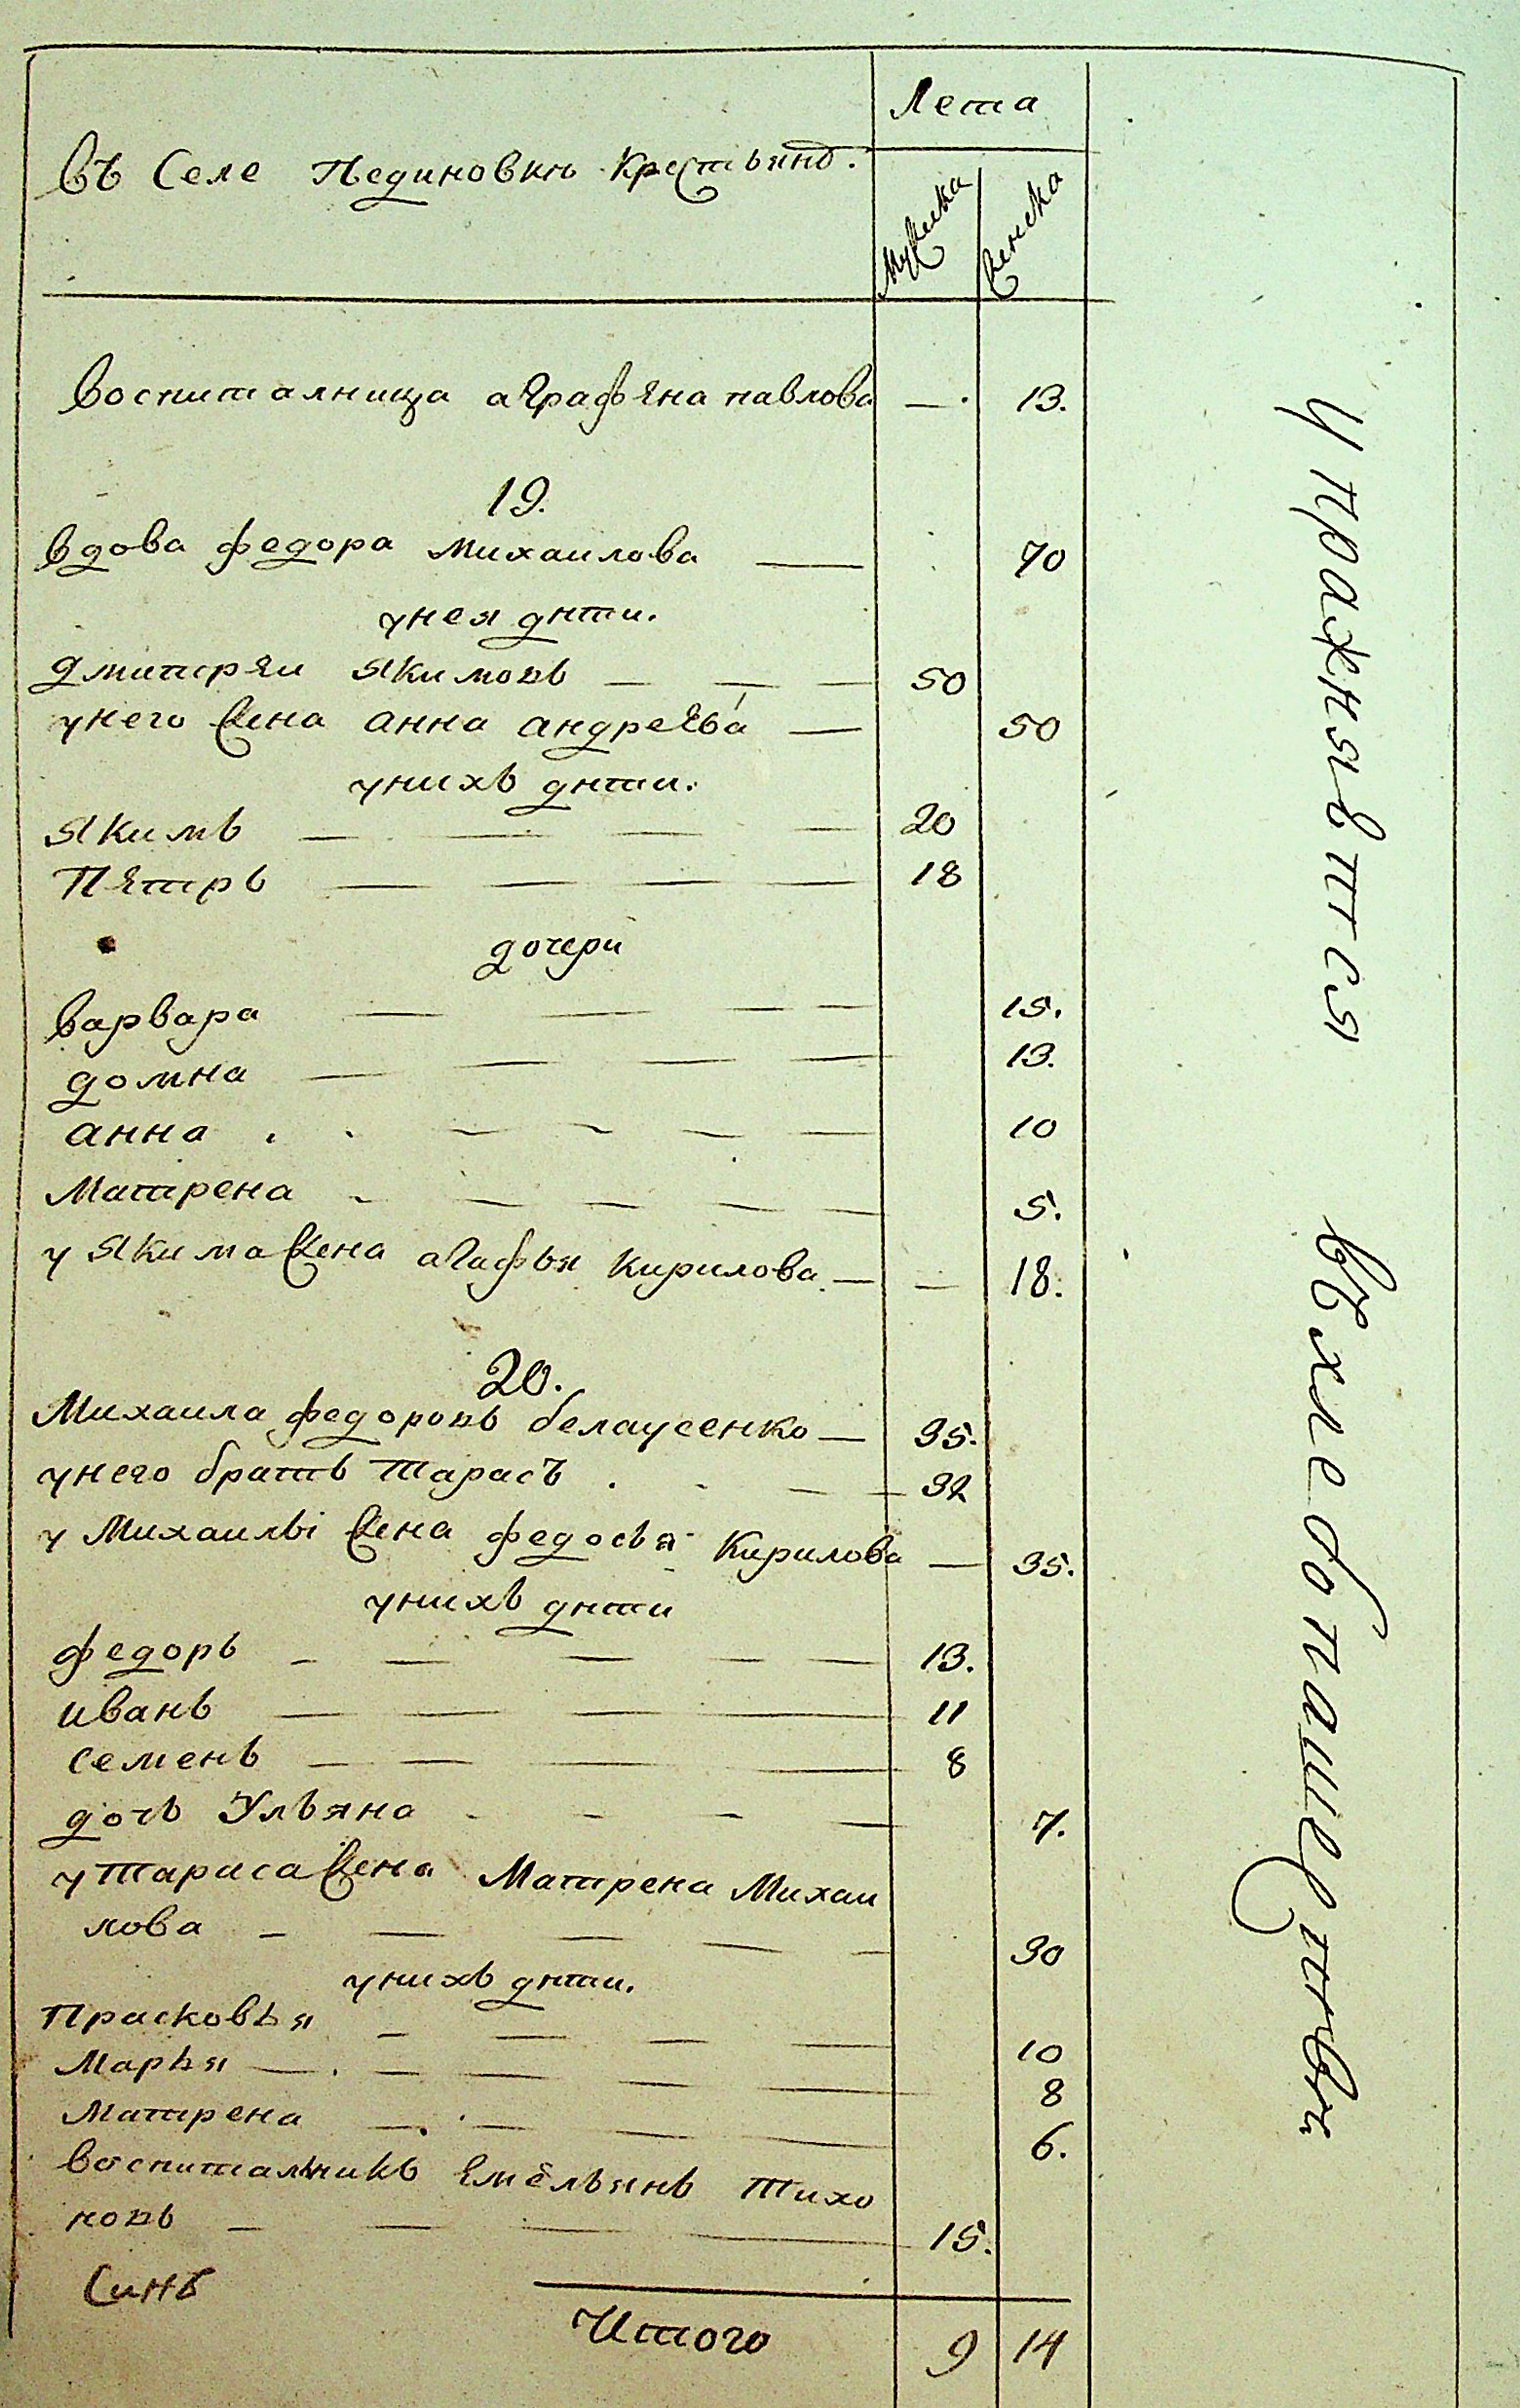 Лета
Въ Селе Пединовки Крестьянъ.
Мужска Женска
Воспиталница аграфена павлова — 13.
19.
Вдова федора Михаилова — 70
унея дѣти.
Дмитреи Якимовъ — — — 50
унего жена анна андреева — 50
унихъ дѣти.
Якимъ — — — — 20
Петръ — — — — 18
дочери
Варвара — — — — 15.
домна — — — — 13.
анна . . — — — — 10
Матрена - — — — — 5.
у Якима жена агафья Кирилова — — 18.
20.
Михаила федоровъ белаусенко — 35.
унего братъ Тарасъ . - — — 32
у Михаилы жена федосья Кирилова — 35.
унихъ дѣти
федоръ — — — — — 13.
иванъ — — — — 11
семенъ — — — — 8
дочь Ульяна - — — — 7.
у Тараса жена Матрена Михаи
лова — — — — — 30
унихъ дѣти.
Прасковья — — — — 10
Марья — . — — — 8
Матрена — . — — — 6.
воспиталникъ Емельянъ Тихо
новъ — — — — 15.
Синъ
Итого 9 14
Упражняются въ хлебопашестве